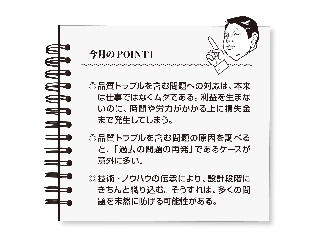 今月のPOINT!
品質トラブルを含む問題への対応は、本来
は仕事ではなくムダである。利益を生まな
いのに、時間や労力がかかる上に損失金
まで発生してしまう。
品質トラブルを含む問題の原因を調べる
と、「過去の問題の再発」であるケースが
意外に多い。
技術・ノウハウの伝承により、設計段階に
きちんと織り込む。そうすれば、多くの問
題を未然に防げる可能性がある。